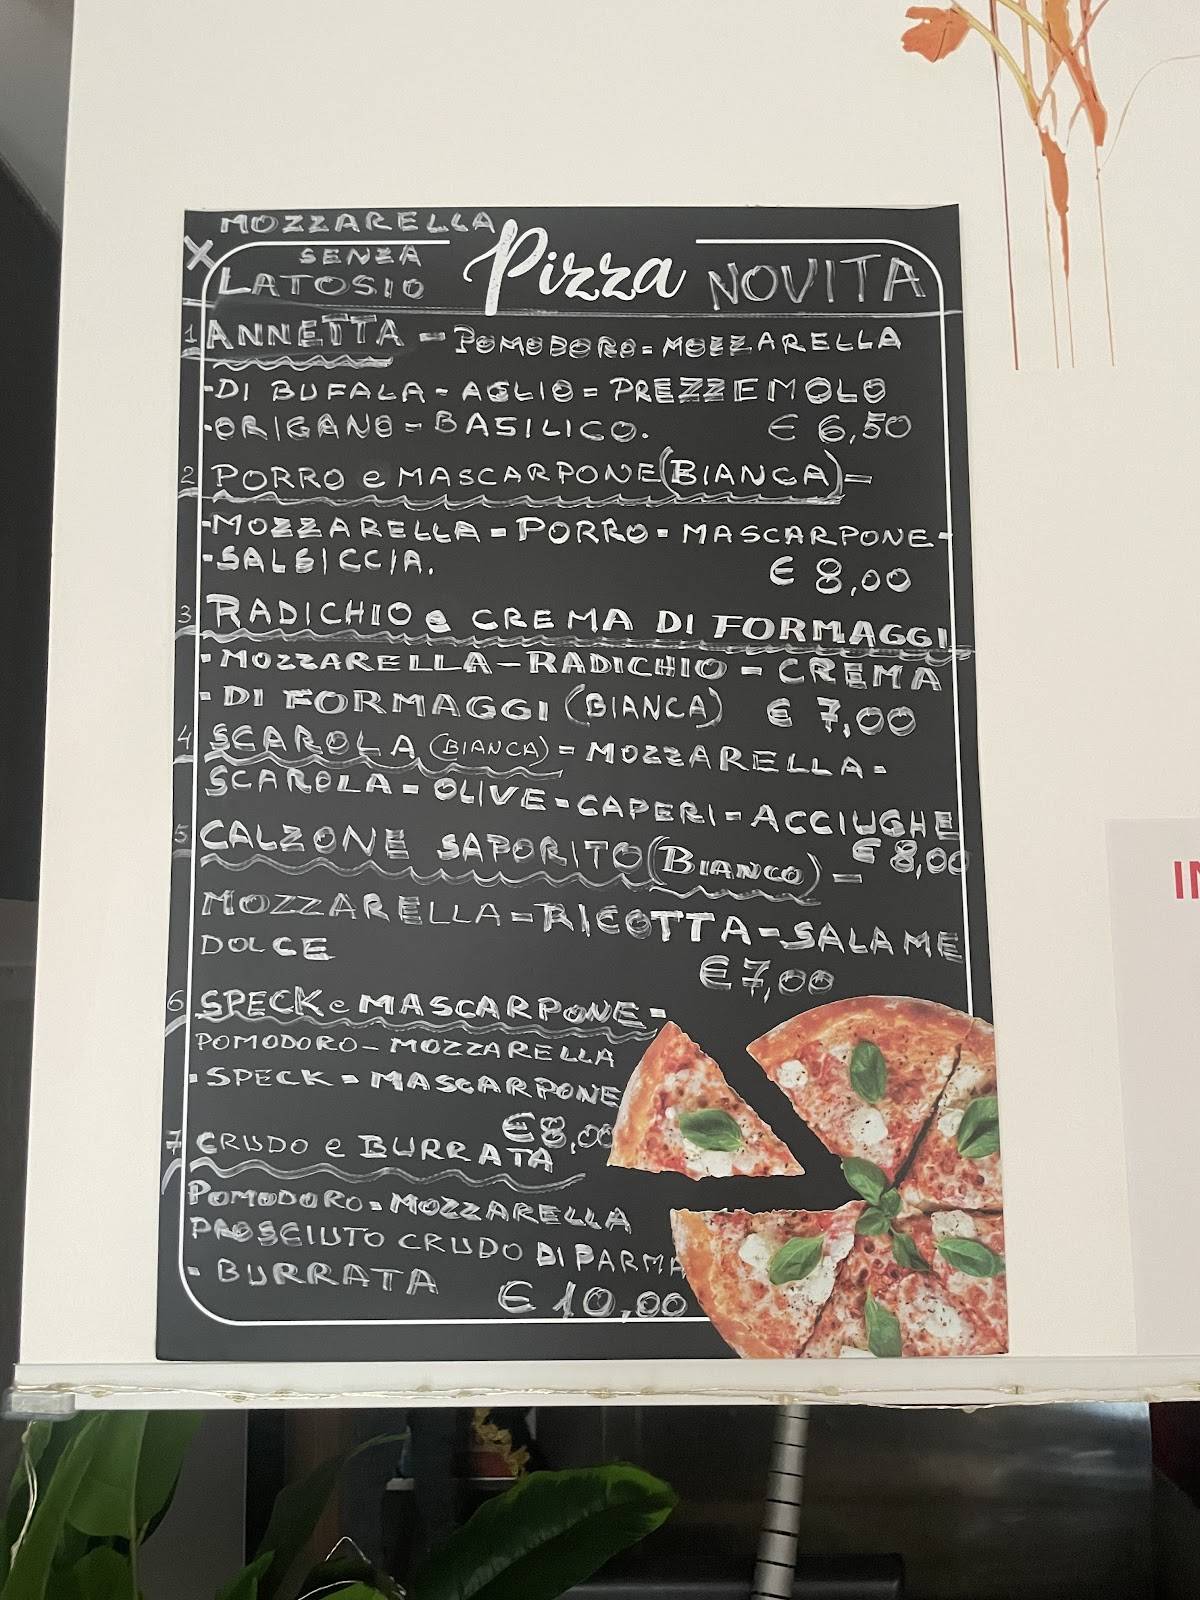 MOZZARELLA
X SENZA
LATOSIO
Pizza NOVITA
1 ANNETTA - POMODORO = MOZZARELLA
-DI BUFALA - AGLIO = PREZZEMOLO
-ORIGANO = BASILICO. € 6,50
2 PORRO e MASCARPONE (BIANCA) =
-MOZZARELLA = PORRO = MASCARPONE -
-SALSICCIA. € 8,00
3 RADICHIO e CREMA DI FORMAGGI
- MOZZARELLA - RADICHIO = CREMA
- DI FORMAGGI (BIANCA) € 7,00
4 SCAROLA (BIANCA) = MOZZARELLA =
SCAROLA = OLIVE = CAPERI = ACCIUGHE
€ 8,00
5 CALZONE SAPORITO (BIANCO) =
MOZZARELLA = RICOTTA = SALAME
DOLCE
€ 7,00
6 SPECK e MASCARPONE =
POMODORO - MOZZARELLA
- SPECK = MASCARPONE
€ 8,00
7 CRUDO e BURRATA
POMODORO = MOZZARELLA
PROSCIUTO CRUDO DI PARMA
- BURRATA € 10,00